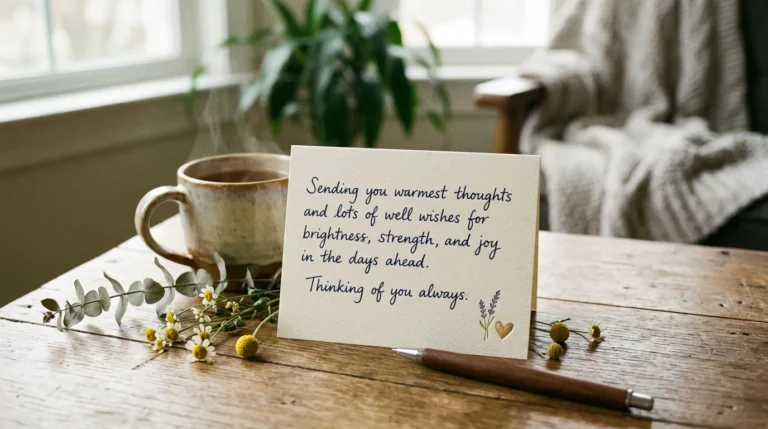 Sending you warmest thoughts
and lots of well wishes for
brightness, strength, and joy
in the days ahead.
Thinking of you always.